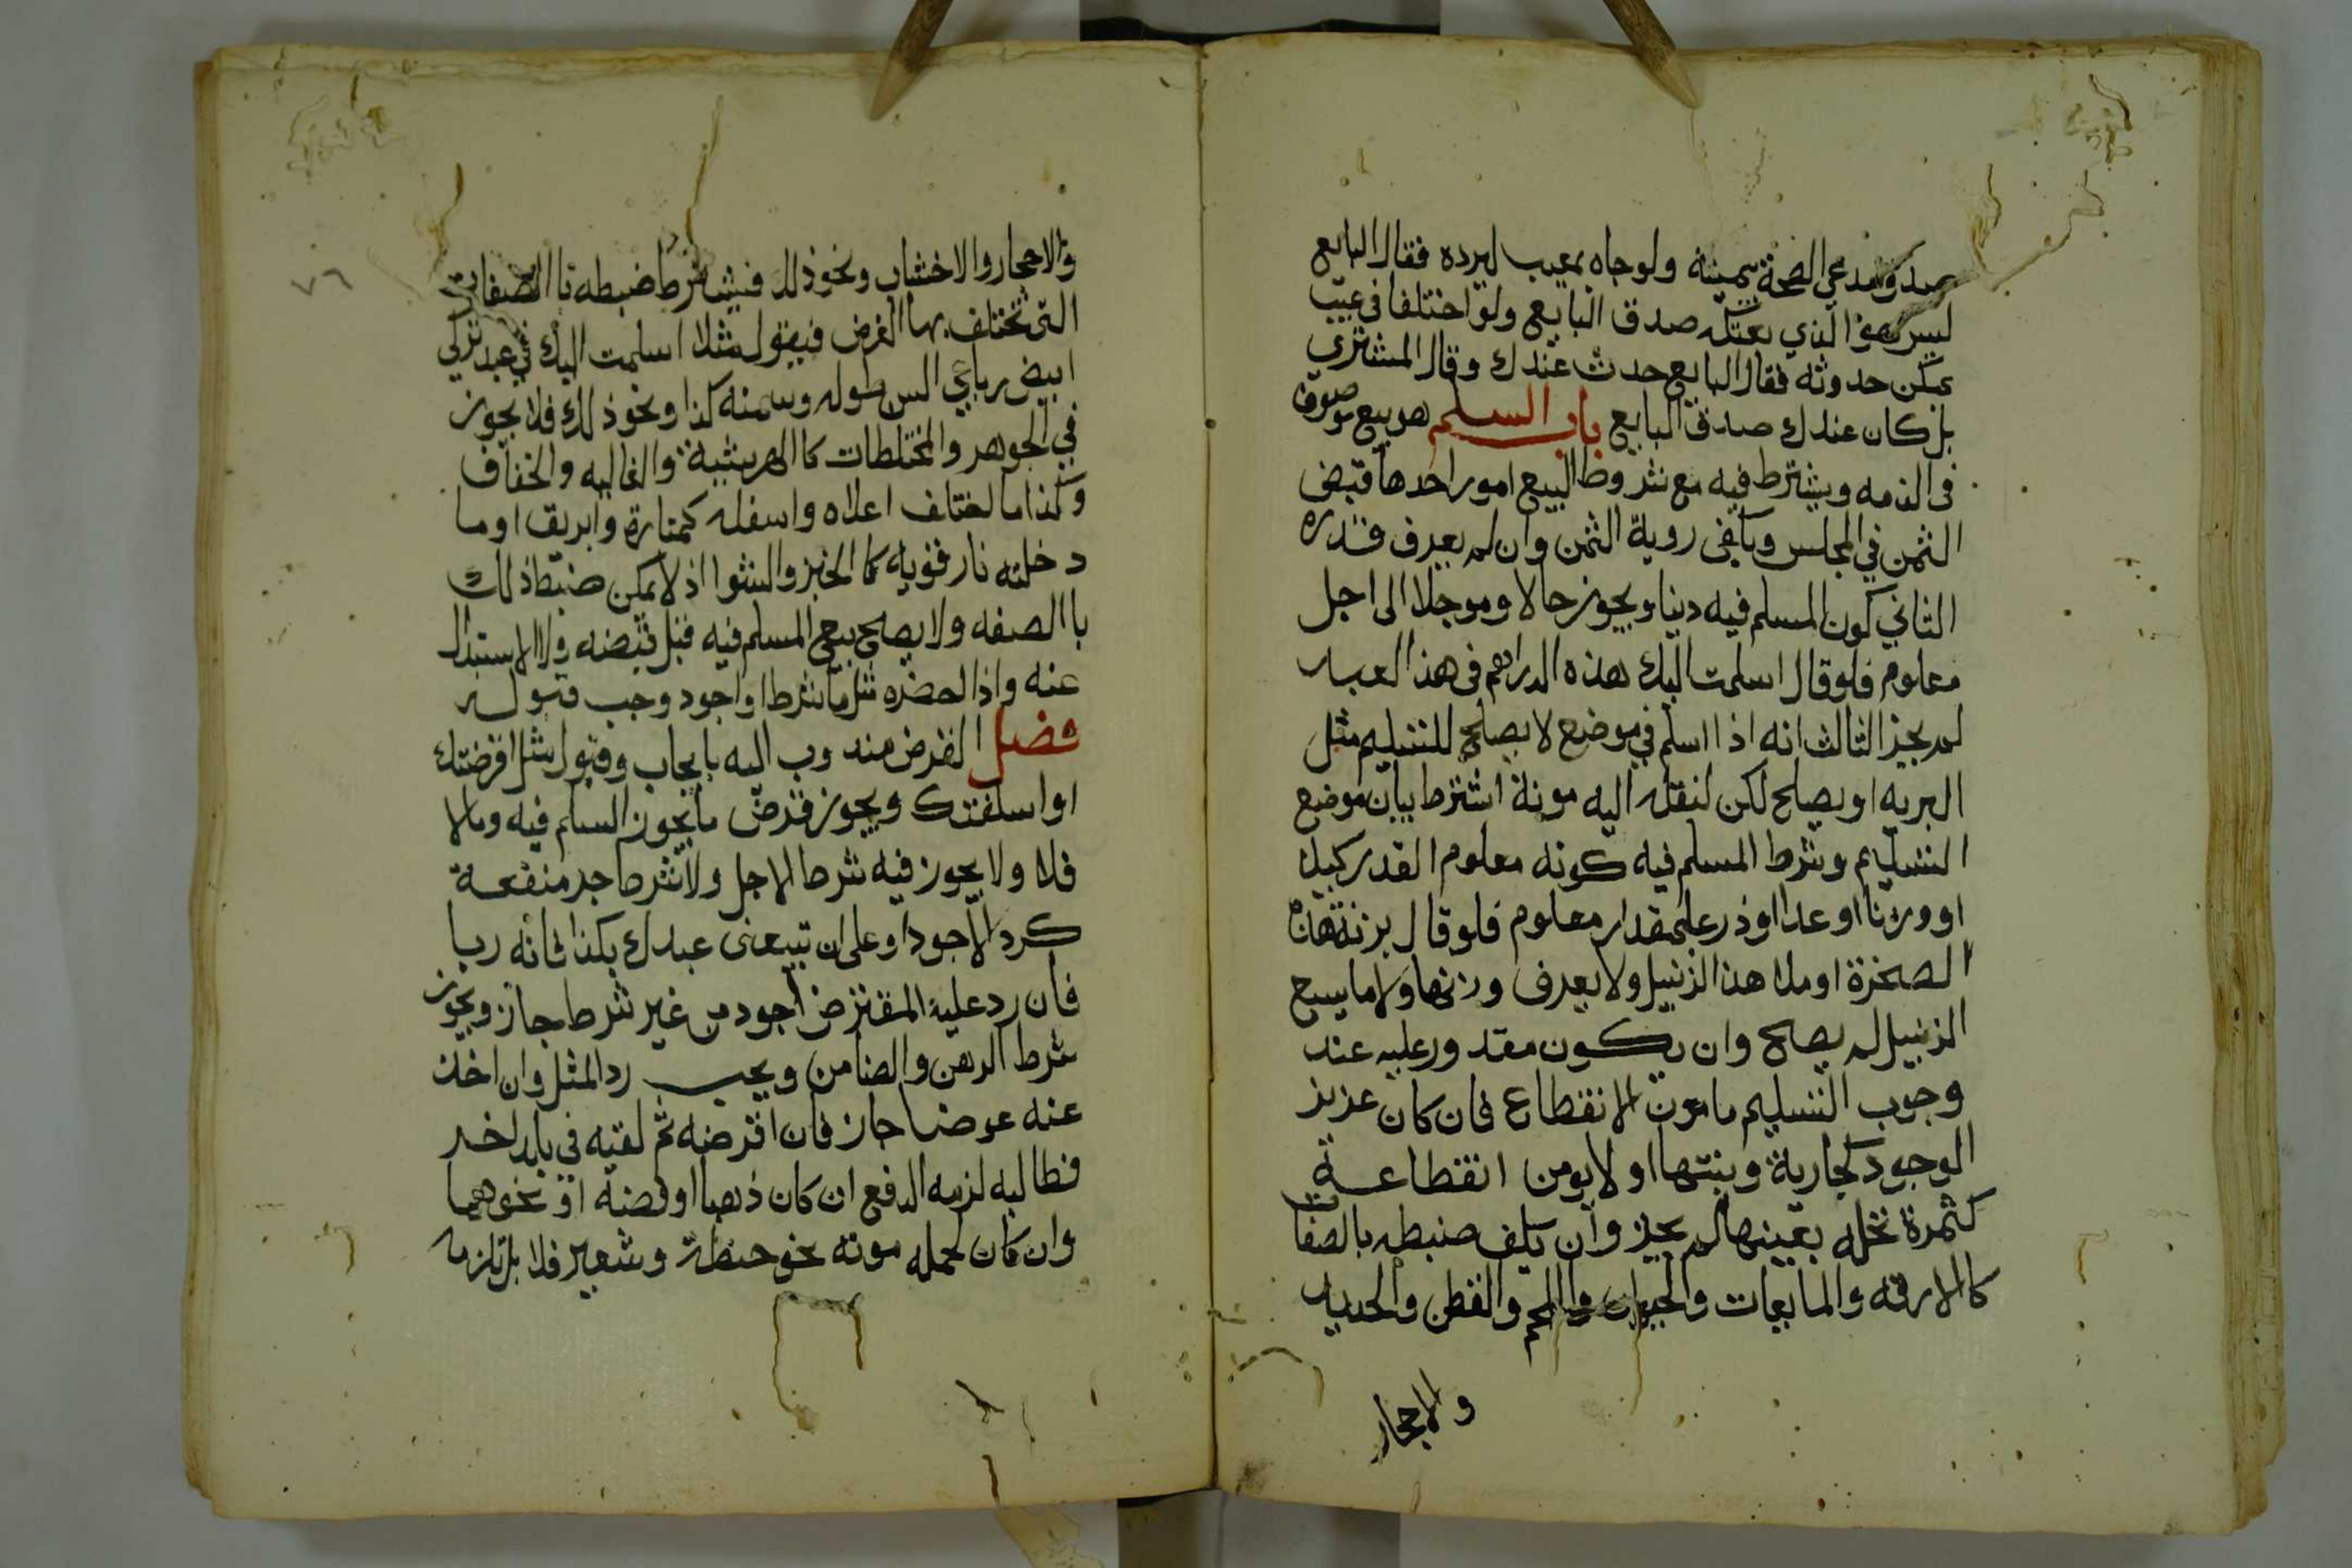 صدق مدعي الصحة بيمينه ولو جاه بمعيب ليرده فقال البايع
ليس هو الذي بعتكه صدق البايع ولو اختلفا في عيب
يمكن حدوثه فقال البايع حدث عندك وقال المشتري
بل كان عندك صدق البايع باب السلم هو بيع موصوف
في الذمه ويشترط فيه مع شروط البيع امور احدها قبض
الثمن في المجلس ويكفى روية الثمن وان لم يعرف قدره
الثاني كون المسلم فيه دينا ويجوز حالا وموجلا الى اجل
معلوم فلو قال اسلمت اليك هذه الدراهم في هذا العبد
لم يجز الثالث انه اذا اسلم في موضع لا يصلح للتسليم مثل
البريه او يصلح لكن لنقله اليه مونة اشترط بيان موضع
التسليم وشرط المسلم فيه كونه معلوم القدر كيلا
او وزنا او عدا او ذرعا بمقدار معلوم فلو قال بزنة هذه
الصخرة او ملا هذا الزنبيل ولا يعرف وزنها ولا ما يسع
الزنبيل لم يصح وان يكون مقدورعليه عند
وجوب التسليم مامون الانقطاع فان كان عزيز
الوجود كجارية وبنتها او لا يومن انقطاعة
كثمرة نخله بعينها لم يجز وان يكف ضبطه بالصفات
كالارقه والمايعات والحيوان واللحم والقطن والحديد
والاحجار
٧٦
والاحجار والاخشاب ونحو ذلك فيشترط ضبطه باالصفات
التى تختلف بها الغرض فيقول مثلا اسلمت اليك في عبد تركي
ابيض رباعي السن طوله وسمنه كذا ونحو ذلك فلا يجوز
في الجوهر والمختلطات كاالهريشية والغاليه والخفاف
وكذا ما اختلف اعلاه واسفله كمنارة وابريق او ما
دخلته نار قويه كاالخبز والشوا اذ لا يمكن ضبط ذلك
باالصفه ولا يصح بيع المسلم فيه قبل قبضه ولا الاستبدال
عنه واذا احضره مثل ما شرط او اجود وجب قبوله
فصل القرض مندوب اليه بايجاب وقبول مثل اقرضتك
او اسلفتك ويجوز قرض ما يجوز السلم فيه وما لا
فلا ولا يجوز فيه شرط الاجل ولا شرط جر منفعة
كرد الاجود او على ان تبيعنى عبدك بكذا فانه ربا
فان رد عليه المقترض اجود من غير شرط جاز ويجوز
شرط الرهن والضامن ويجب رد المثل وان اخذ
عنه عوضا جاز فان اقرضه ثم لقيه في بلد اخر
فطالبه لزمه الدفع ان كان ذهبا او فضه او نحوهما
وان كان لحمله مونه نحو حنطة وشعير فلا بل تلزمه